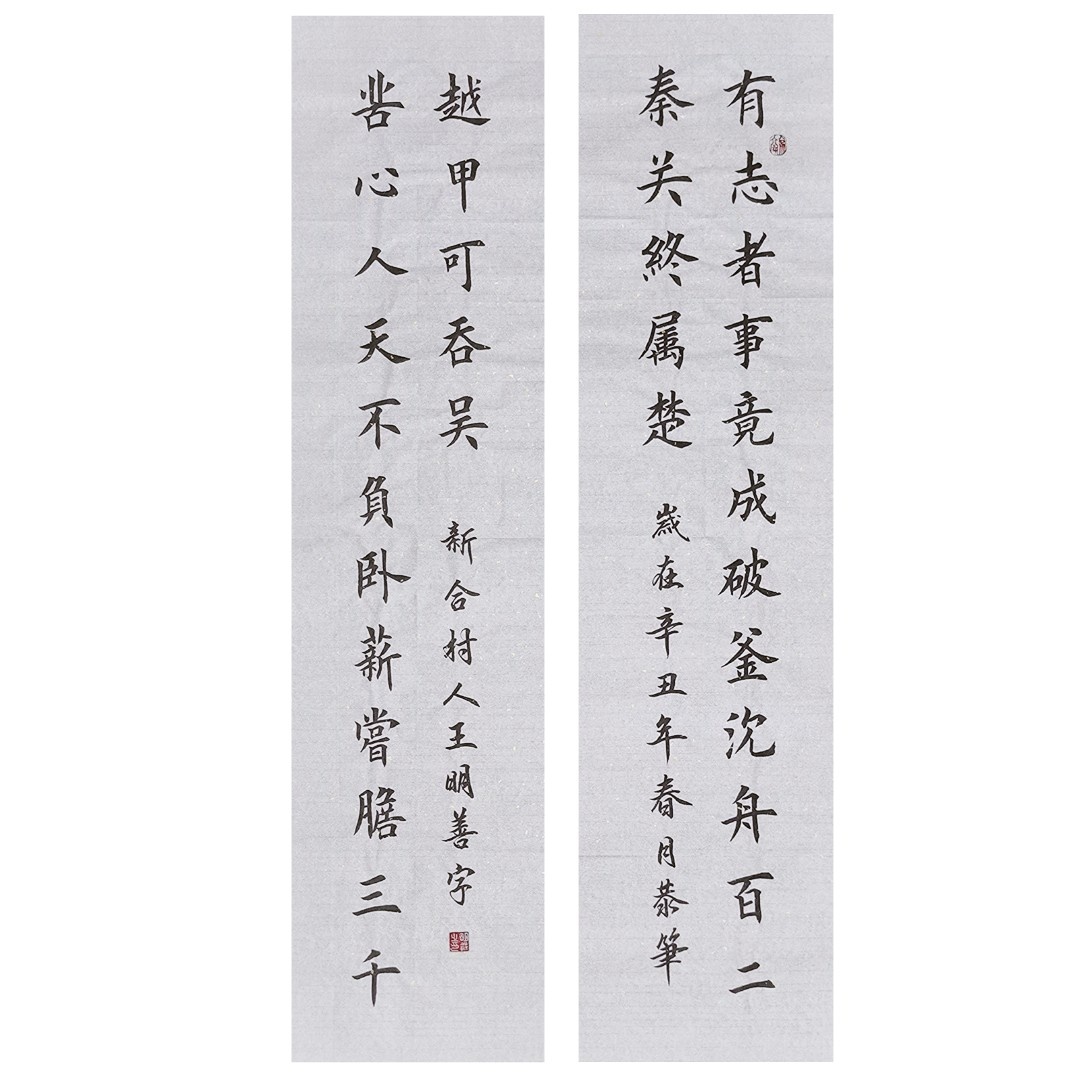 有志者事竟成破釜沉舟百二
秦关終属楚
歲在辛丑年春月恭筆
苦心人天不負卧薪嘗膽三千
越甲可吞吴
新合村人王明善字